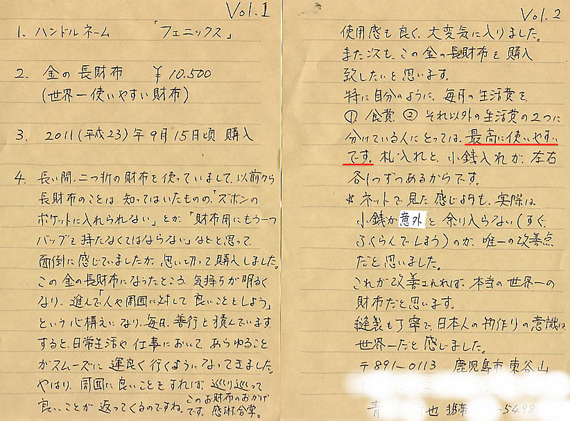 Vol.1
1. ハンドルネーム 「フェニックス」
2. 金の長財布 ￥10,500
(世界一使いやすい財布)
3. 2011(平成23)年9月15日頃 購入
4. 長い間、二つ折の財布を使っていまして、以前から
長財布のことは知ってはいたものの、「ズボンの
ポケットに入れられない」とか、「財布用にもう一つ
バッグを持たなくてはならない」などと思って
面倒に感じていましたが、思い切って購入しました。
この金の長財布になったところ、気持ちが明るく
なり、進んで「人や周囲に対して良いことをしよう」
という心構えになり、毎日、善行を積んでいます
すると、日常生活や仕事において、あらゆること
がスムーズに運良く行くようになってきました。
やはり、周囲に良いことをすれば、巡り巡って
良いことが返ってくるのですね。このお財布のおかげ
です。感謝
Vol.2
使用感も良く、大変気に入りました。
また次も、この金の長財布を購入
致したいと思います。
特に自分のように、毎月の生活費を、
① 食費 ② それ以外の生活費の2つに
分けている人にとっては、最高に使いやすい
です。札入れと、小銭入れが、左右
各1つずつあるからです。
* ネットで見た感じよりも、実際は
小銭が意外と余り入らない(すぐ、
ふくらんでしまう)のが、唯一の改善点
だと思いました。
これが改善されれば、本当の世界一の
財布だと思います。
縫製も丁寧で、日本人の物作りの意識は
世界一だと感じました。
〒891-0113 鹿児島市東谷山
青 也